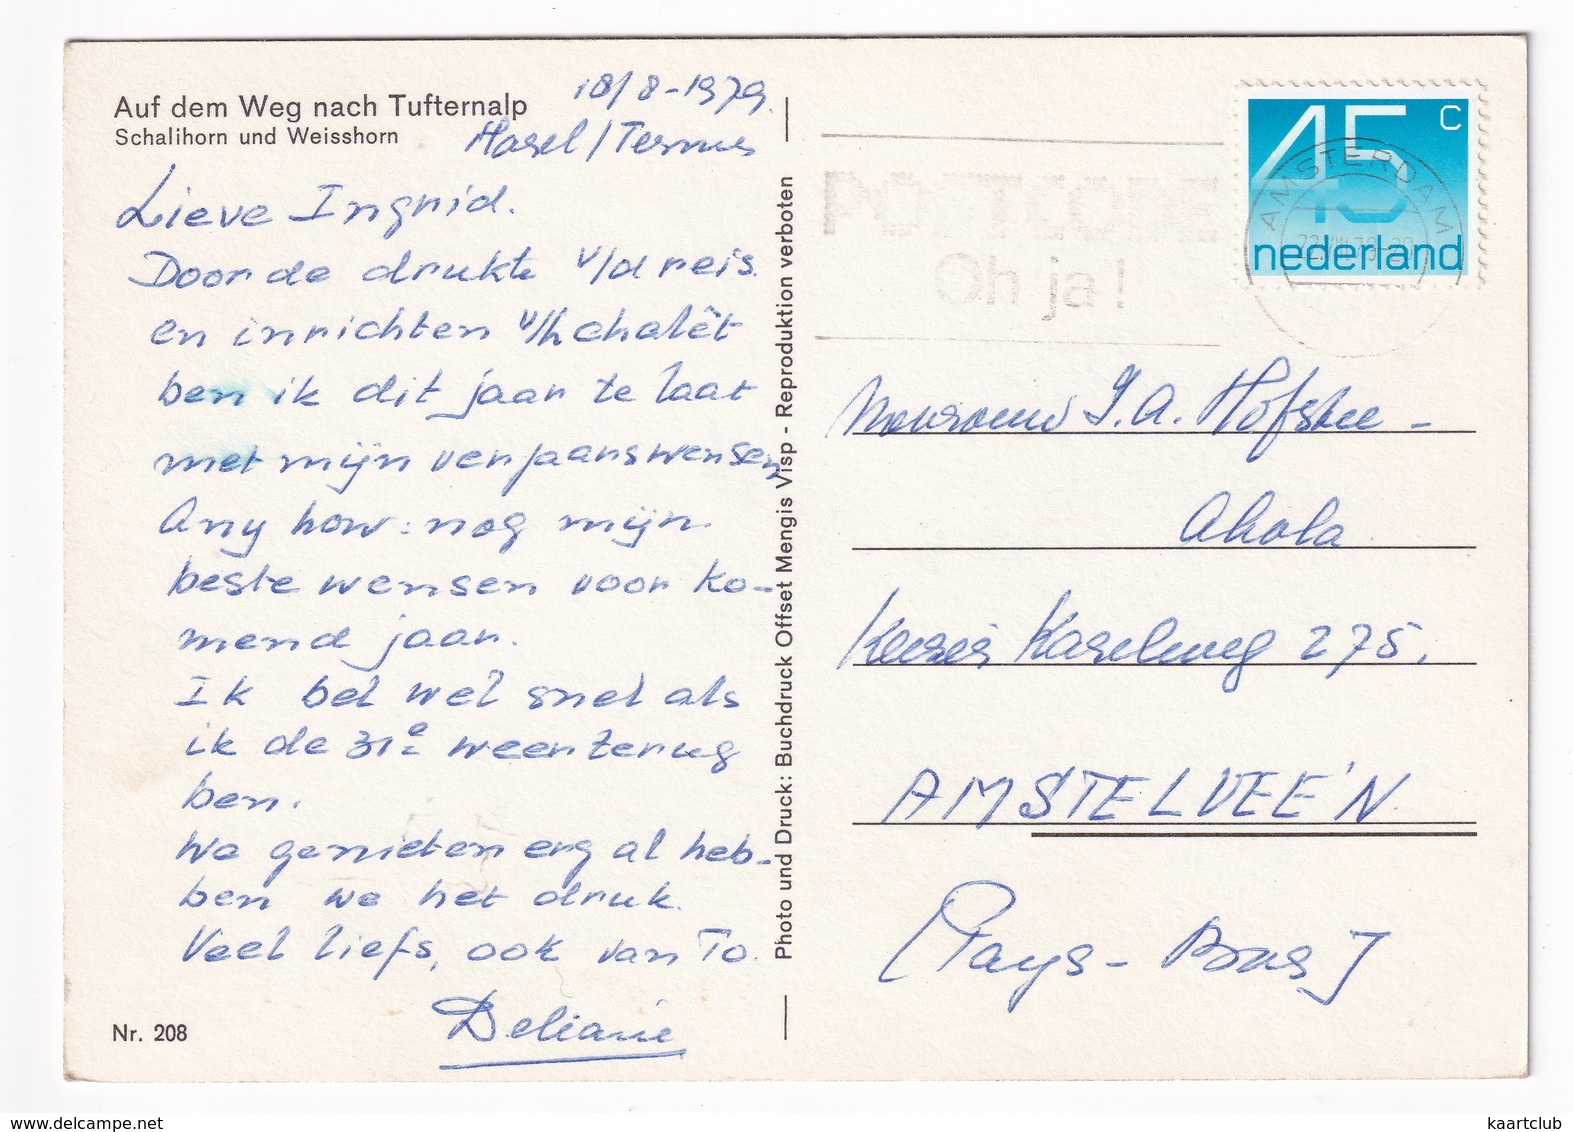 Auf dem Weg nach Tufternalp
Schalihorn und Weisshorn
18/8-1979.
Lieve Ingrid.
Door de drukte v/d reis
en inrichten v/h chalêt
ben ik dit jaar te laat
met mijn verjaarswensen
Any how: nog mijn
beste wensen voor ko-
mend jaar.
Ik bel wel snel als
ik de 31e weer terug
ben.
We genieten erg al heb-
ben we het druk.
Veel liefs, ook van To.
Nr. 208
Photo und Druck: Buchdruck Offset Mengis Visp - Reproduktion verboten
POSTCODE
Oh ja!
45 c
nederland
AMSTERDAM
I.A. Hofstee -
Keizer Karelweg 275.
AMSTELVEEN
[Pays-Bas]
www.delcampe.net
kaartclub